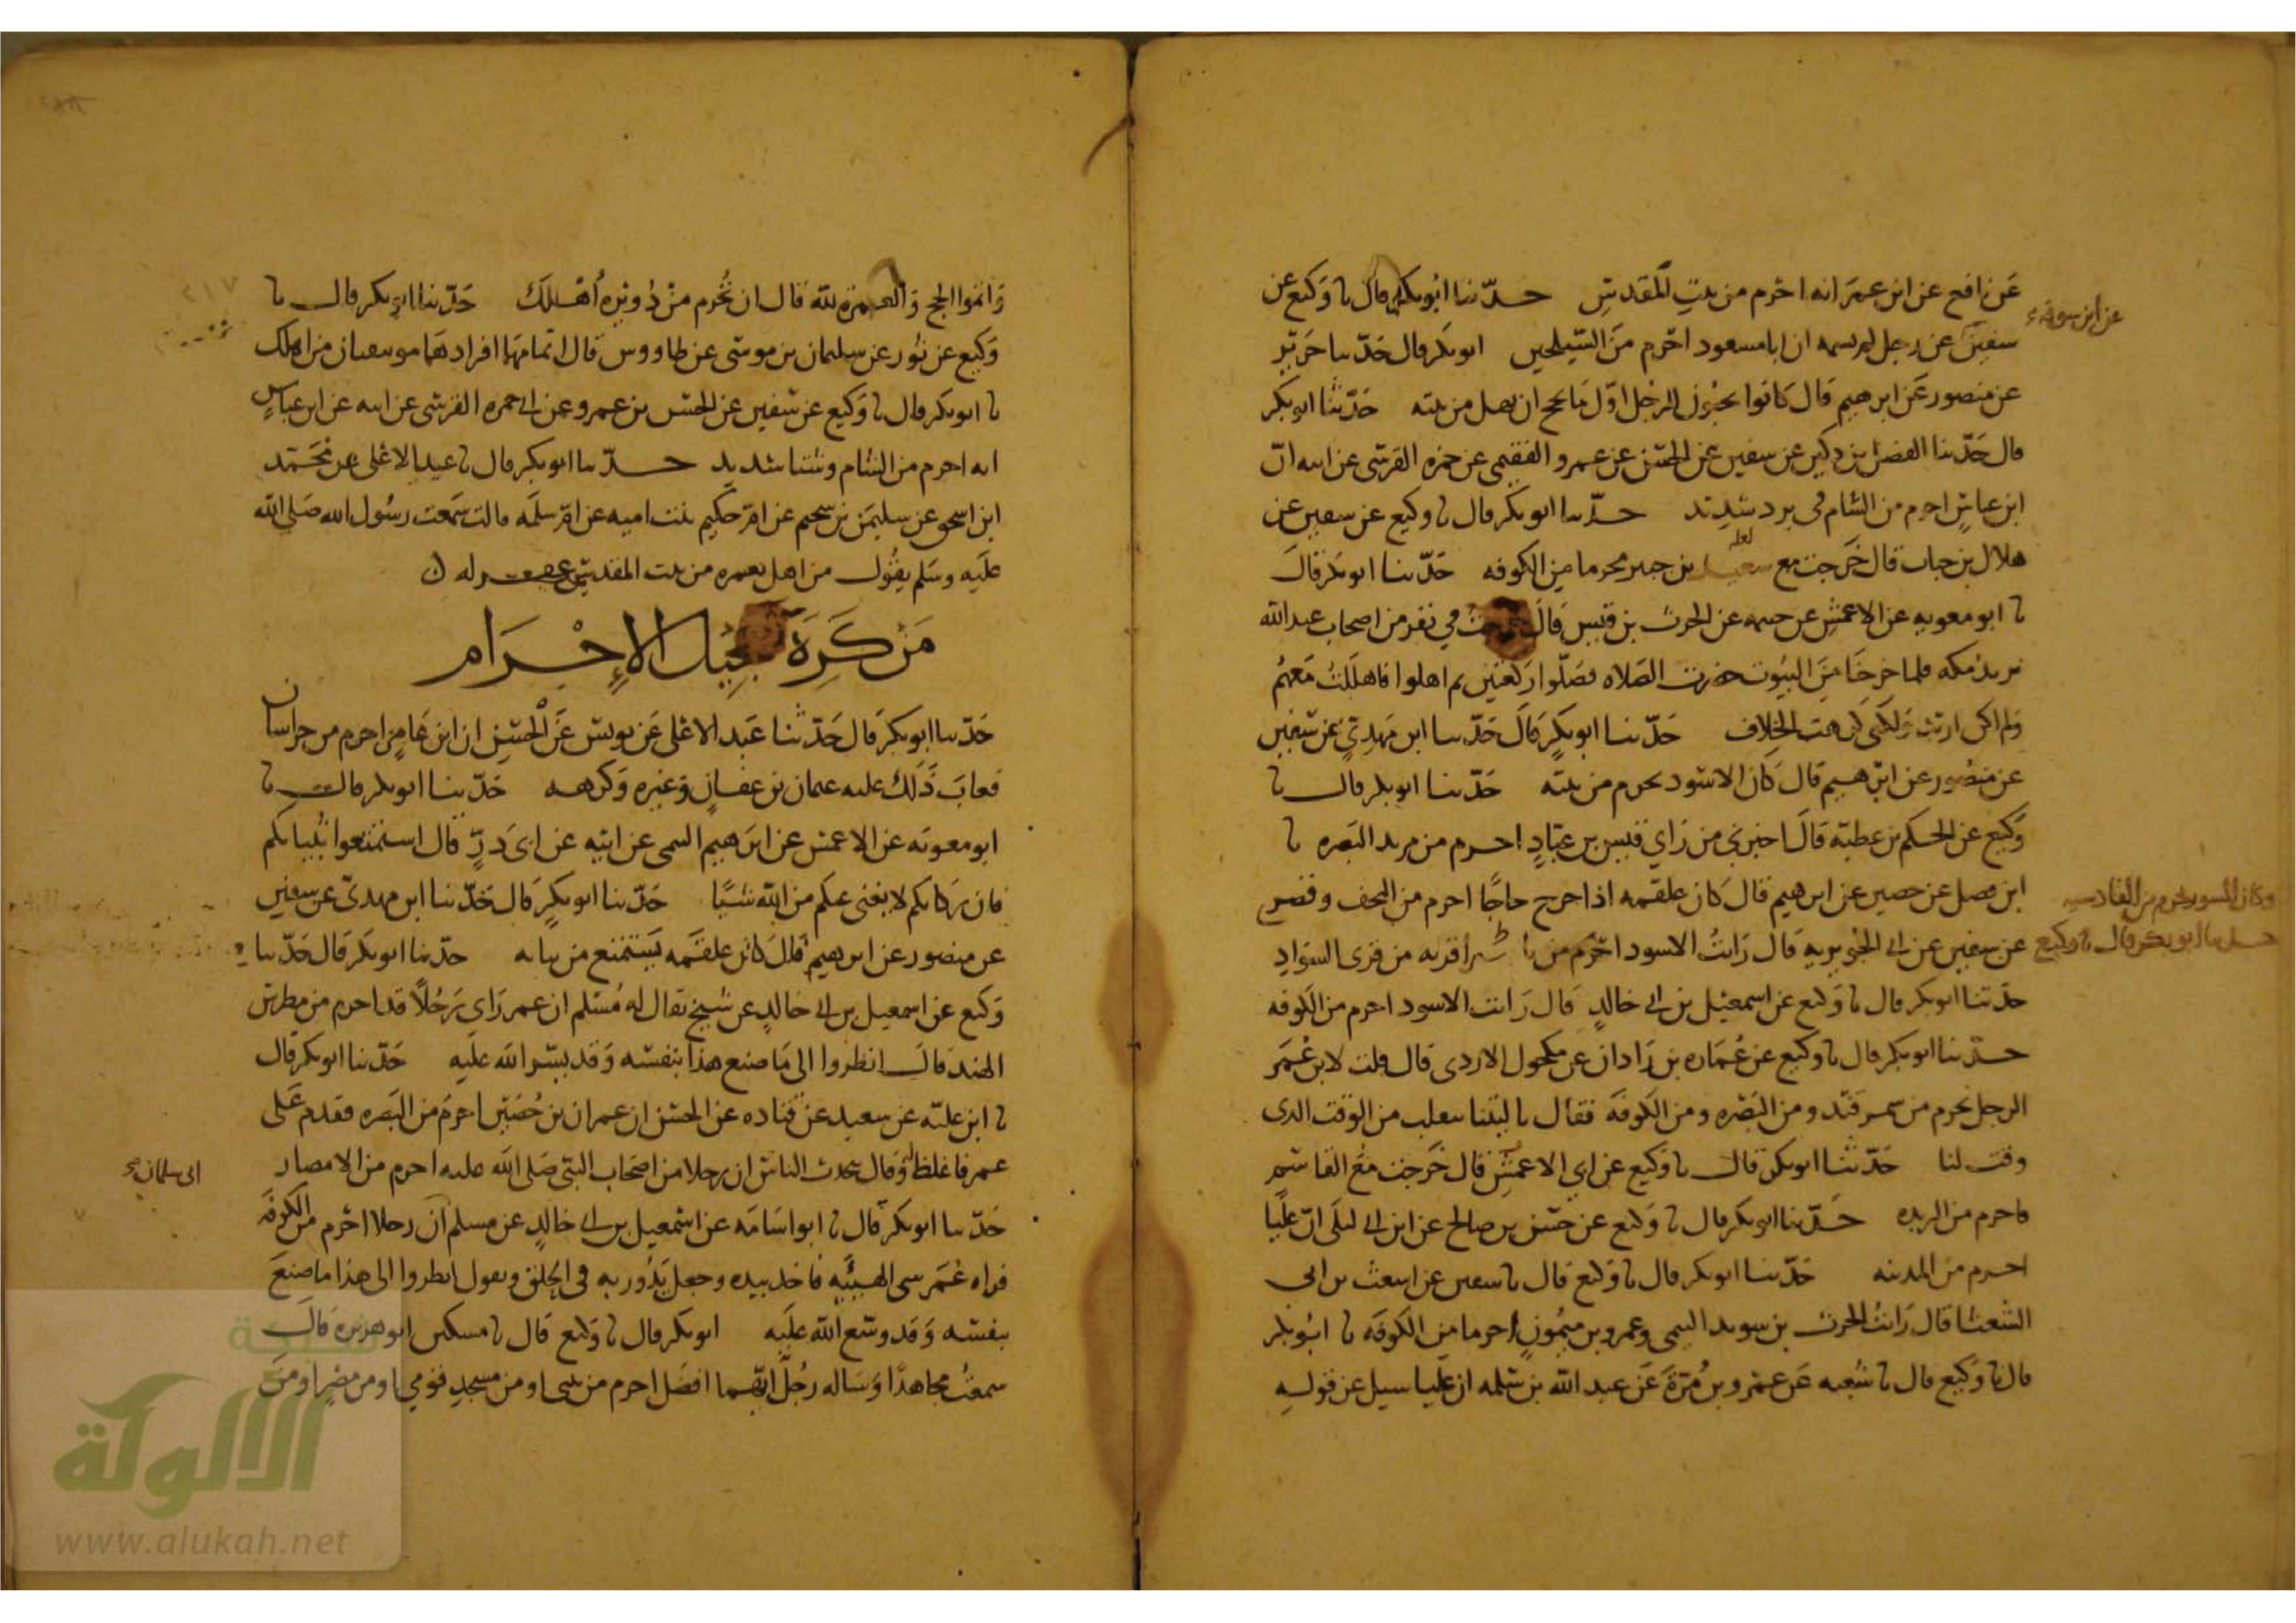 عن نافع عن ابن عمر انه احرم من بيت المقدس حدثنا ابو بكر قال نا وكيع عن
عن ابن سوقه
سفين عن رجل لم يسمه ان ابا مسعود احرم من السيلحين ابو بكر قال حدثنا جرير
عن منصور عن ابرهيم قال كانوا يحبون للرجل اول ما يحج ان يهل من بيته حدثنا ابو بكر
قال حدثنا الفضل بن دكين عن سفين عن الحسن عن عمرو الفقيمي عن حمزه القرشي عن ابيه ان
ابن عباس احرم من الشام في برد شديد حدثنا ابو بكر قال نا وكيع عن سفين عن
لعله
هلال بن خباب قال خرجت مع سعيد بن جبير محرما من الكوفه حدثنا ابو بكر قال
نا ابو معويه عن الاعمش عن خيثمه عن الحرث بن قيس قال خرجت في نفر من اصحاب عبد الله
نريد مكه فلما خرجنا من البيوت حضرت الصلاه فصلوا ركعتين ثم اهلوا فاهللت معهم
ولم اكن اردت ولكني كرهت الخلاف حدثنا ابو بكر قال حدثنا ابن مهدي عن سفين
عن منصور عن ابرهيم قال كان الاسود يحرم من بيته حدثنا ابو بكر قال نا
وكيع عن الحكم بن عطيه قال اخبرني من راي قيس بن عباد احرم من مربد البصره نا
ابن فضيل عن حصين عن ابرهيم قال كان علقمه اذا خرج حاجا احرم من النجف وقصر
وكان الاسود يحرم من القادسيه
حدثنا ابو بكر قال نا وكيع
عن سفين عن ابي الجويريه قال رايت الاسود احرم من قريه من قري السواد
حدثنا ابو بكر قال نا وكيع عن اسمعيل بن ابي خالد قال رايت الاسود احرم من الكوفه
حدثنا ابو بكر قال نا وكيع عن عماره بن زاذان عن مكحول الازدي قال قلت لابن عمر
الرجل يحرم من سمرقند ومن البصره ومن الكوفه فقال يا ليتنا ننفلت من الوقت الذي
وقت لنا حدثنا ابو بكر قال نا وكيع عن ابي الاعمش قال خرجت مع القاسم
فاحرم من الربذه حدثنا ابو بكر قال نا وكيع عن حسن بن صالح عن ابن ابي ليلى ان عليا
احرم من المدينه حدثنا ابو بكر قال نا وكيع قال نا سفين عن اشعث بن ابي
الشعثا قال رايت الحرث بن سويد التيمي وعمرو بن ميمون احرما من الكوفه نا ابو بكر
قال نا وكيع قال نا شعبه عن عمرو بن مره عن عبد الله بن سلمه ان عليا سيل عن قوله
واتموا الحج والعمره لله قال ان تحرم من دويره اهلك حدثنا ابو بكر قال نا
وكيع عن ثور عن سليمان بن موسى عن طاووس قال اتمامهما افرادهما من اهلك
نا ابو بكر قال نا وكيع عن سفين عن الحسن بن عمرو عن ابي حمزه القرشي عن ابيه عن ابن عباس
انه احرم من الشام وشتا شديد حدثنا ابو بكر قال نا عبد الاعلى عن محمد
ابن اسحق عن سليمن بن سحيم عن ام حكيم بنت اميه عن ام سلمه قالت سمعت رسول الله صلى الله
عليه وسلم يقول من اهل بعمره من بيت المقدس غفر له
من كره تعجيل الإحرام
حدثنا ابو بكر قال حدثنا عبد الاعلى عن يونس عن الحسن ان ابن عامر احرم من خراسان
فعاب ذلك عليه عثمان بن عفان وغيره وكرهه حدثنا ابو بكر قال نا
ابو معويه عن الاعمش عن ابرهيم التيمي عن ابيه عن ابي ذر قال استمتعوا بثيابكم
فان ركابكم لا يغني عنكم من الله شيئا حدثنا ابو بكر قال حدثنا ابن مهدي عن سفين
عن منصور عن ابرهيم قال كان علقمه يستمتع من ثيابه حدثنا ابو بكر قال حدثنا
وكيع عن اسمعيل بن ابي خالد عن شيخ يقال له مسلم ان عمر راى رجلا قد احرم من
الهند قال انظروا الى ما صنع هذا بنفسه وقد يسر الله عليه حدثنا ابو بكر قال
نا ابن عليه عن سعيد عن قتاده عن الحسن ان عمران بن حصين احرم من البصره فقدم على
عمر فاغلظ له وقال يتحدث الناس ان رجلا من اصحاب النبي صلى الله عليه احرم من الامصار
ابى سلمان
حدثنا ابو بكر قال نا ابو اسامه عن اسمعيل بن ابي خالد عن مسلم ان رجلا احرم من الكوفه
فراه عمر سيي الهيئه فاخذ بيده وجعل يدور به في الحلق ويقول انظروا الى هذا ما صنع
بنفسه وقد وسع الله عليه ابو بكر قال نا وكيع قال نا مسكين ابو هريره قال
سمعت مجاهدا وساله رجل ايهما افضل احرم من بيتي او من مسجد قومي او من مصر او من
٢١٧
الألوكة
www.alukah.net